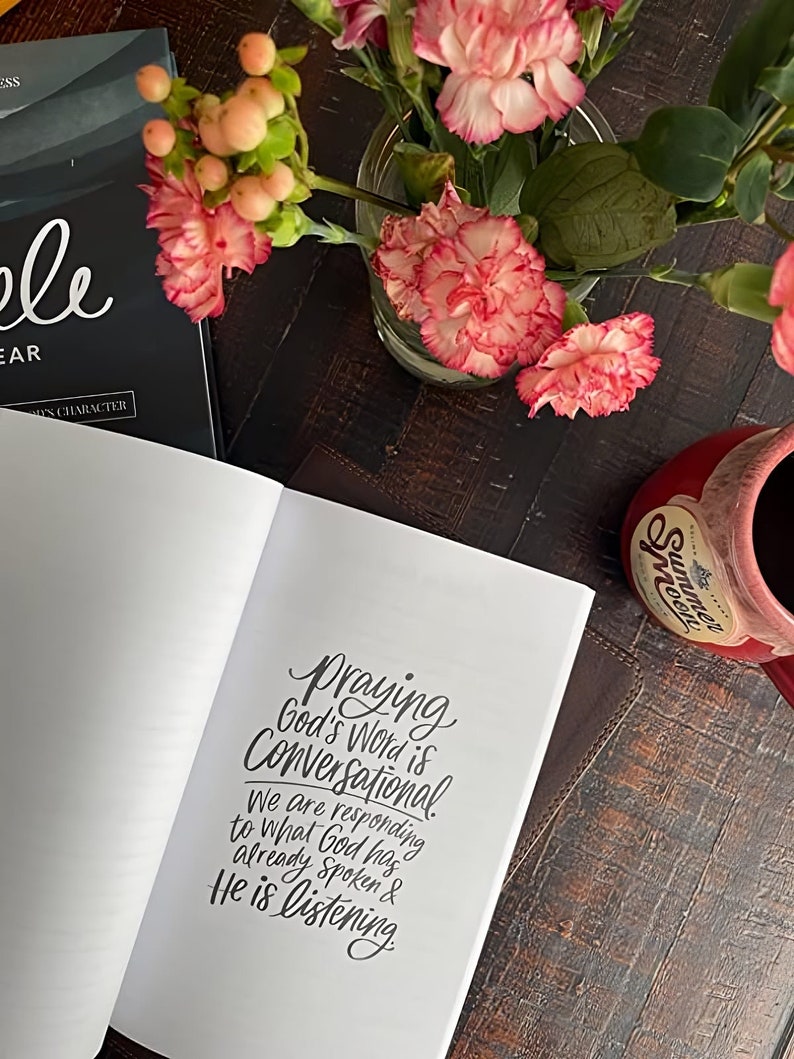 ESS
EAR
CHARACTER
Praying
God's Word is
Conversational.
We are responding
to what God has
already spoken &
He is listening.
Summer
Moon